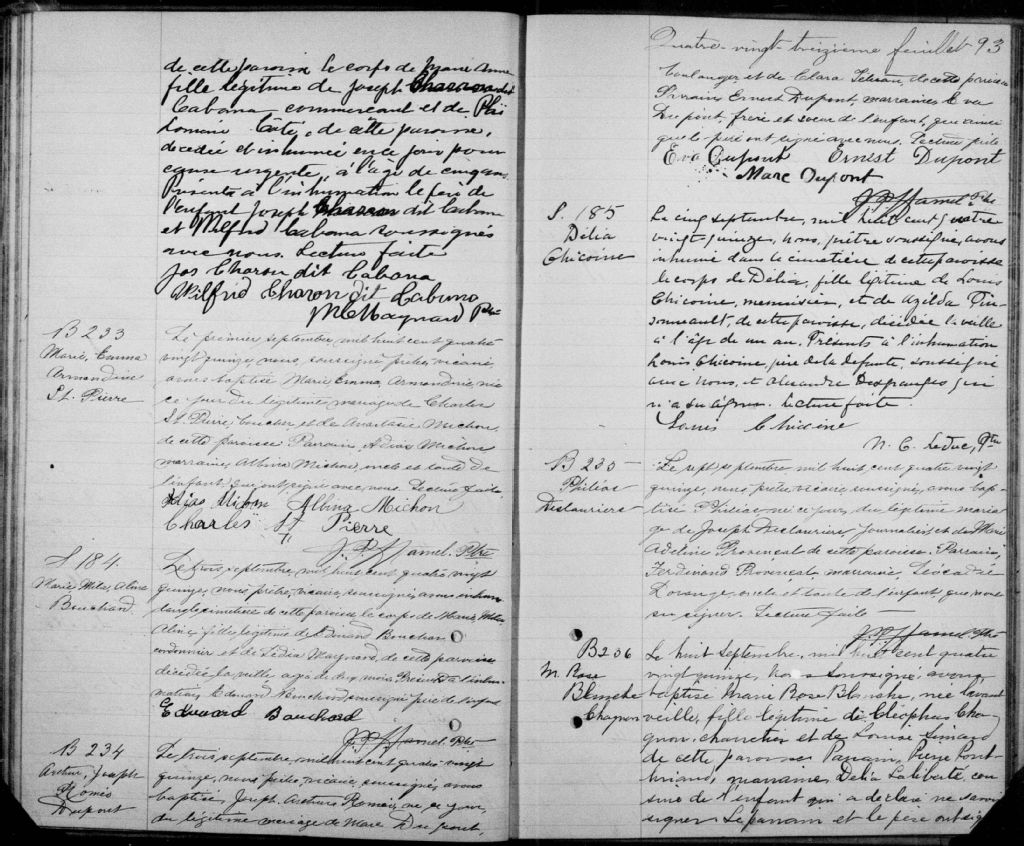 de cette paroisse le corps de Marie Anne
fille légitime de Joseph Charon dit
Cabana commercant et de Phi
lomène Coté, de cette paroisse,
décédée et inhumée en ce jour pour
cause urgente, à l'âge de cinq ans.
Présents à l'inhumation le père de
l'enfant Joseph Charon dit Cabana
et Wilfrid Cabana soussignés
avec nous. Lecture faite
Jos Charon dit Cabana
Wilfrid Charon dit Cabana
Maynard Ptre
B 233
Marie, Emma
Armandine
St. Pierre
Le premier septembre, mil huit cent quatre
vingt quinze, nous, soussigné prêtre, vicaire,
avons baptisé Marie, Emma, Armandine, née
ce jour du légitime mariage de Charles
St. Pierre, boucher et de Anastasie Michon,
de cette paroisse. Parrain, Michon
marraine, Albina Michon, oncle et tante de
l'enfant qui ont signé avec nous. Lecture faite
Michon Albina Michon
Charles St Pierre
J. P. Hamel Ptre
S 184.
Marie, Alina
Bouchard.
Le trois, septembre, mil huit cent quatre vingt
quinze, nous, prêtre, vicaire, soussigné, avons inhumé
dans le cimetière de cette paroisse le corps de Marie,
Alina, fille légitime de Edouard Bouchard
cordonnier et de Lédia Maynard, de cette paroisse
décédée la veille agée de mois. Présent à l'inhu
mation, Edouard Bouchard, soussigné père de l'enfant
Edouard Bouchard
J. P. Hamel Ptre
B 234
Arthur, Joseph
Roméo
Dupont
Le trois, septembre, mil huit cent quatre vingt
quinze, nous, prêtre, vicaire, soussigné, avons
baptisé, Joseph, Arthur, Roméo, né ce jour,
du légitime mariage de Marc Dupont,
Quatre-vingt-treizième feuillet 93
boulanger et de Clara de cette paroisse
Parrain, Ernest Dupont, marraine, Eva
Dupont, frère et soeur de l'enfant, qui ainsi
que le père ont signé avec nous. Lecture faite
Eva Dupont Ernest Dupont
Marc Dupont
J. P. Hamel Ptre
S. 185
Délia
Chicoine
Le cinq septembre, mil huit cent quatre
vingt quinze, nous, prêtre soussigné, avons
inhumé dans le cimetière de cette paroisse
le corps de Délia, fille légitime de Louis
Chicoine, menuisier, et de Azilda Pin
sonneault, de cette paroisse, décédée la veille
à l'âge de un an. Présents à l'inhumation
Louis Chicoine, père de la defunte, soussigné
avec nous, et Alexandre Desgranges qui
n'a su signer. Lecture faite.
Louis Chicoine
N. C. Leduc, Ptre
B 235
Philéas
Deslauriers
Le sept, septembre mil huit, cent quatre vingt
quinze, nous prêtre, vicaire, soussigné, avons bap
tisé Philéas né ce jour, du légitime maria
ge de Joseph Deslauriers journalier et de Marie
Adeline Provençal de cette paroisse. Parrain,
Ferdinand Provençal, marraine, Léocadie
Dorange, oncle et tante de l'enfant, qui n'ont
su signer. Lecture faite
J. P. Hamel Ptre
B 236
M. Rose
Blanche
Chagnon
Le huit Septembre, mil huit cent quatre
vingt quinze, Nous soussigné, avons
baptisé Marie Rose Blanche, née l'avant
veille, fille légitime de Cléophas Cha
gnon, charretier et de Louise Simard
de cette paroisse Parrain, Pierre Pont
briand, marraine, Délia Laliberté, cou
sine de l'enfant qui a déclaré ne savoir
signer. Le parrain et le père ont signé